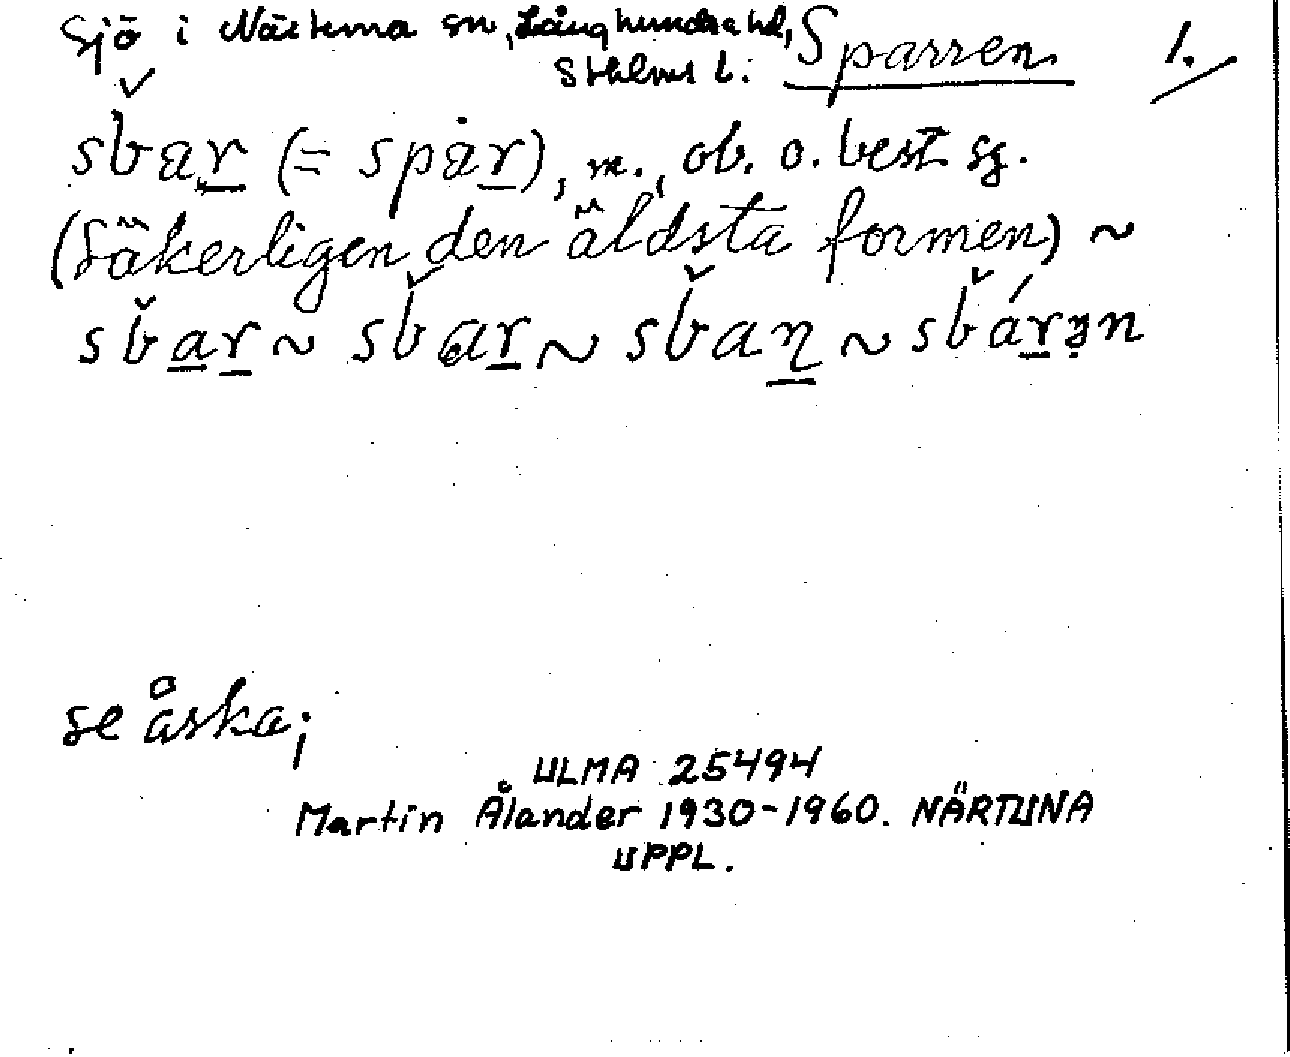 Sjö i Närtuna sn, Långhundra hd, Sparren 1.
Sthlms l.
sb̌ar̲ (= spȧr̲), m., ob. o. best sg.
(säkerligen den äldsta formen) ~
sb̌a̲r̲ ~ sb̌ar̲ ~ sb̌aɳ̲ ~ sb̌ár̲ən
se åska;
ULMA 25494
Martin Ålander 1930-1960. NÄRTUNA
UPPL.